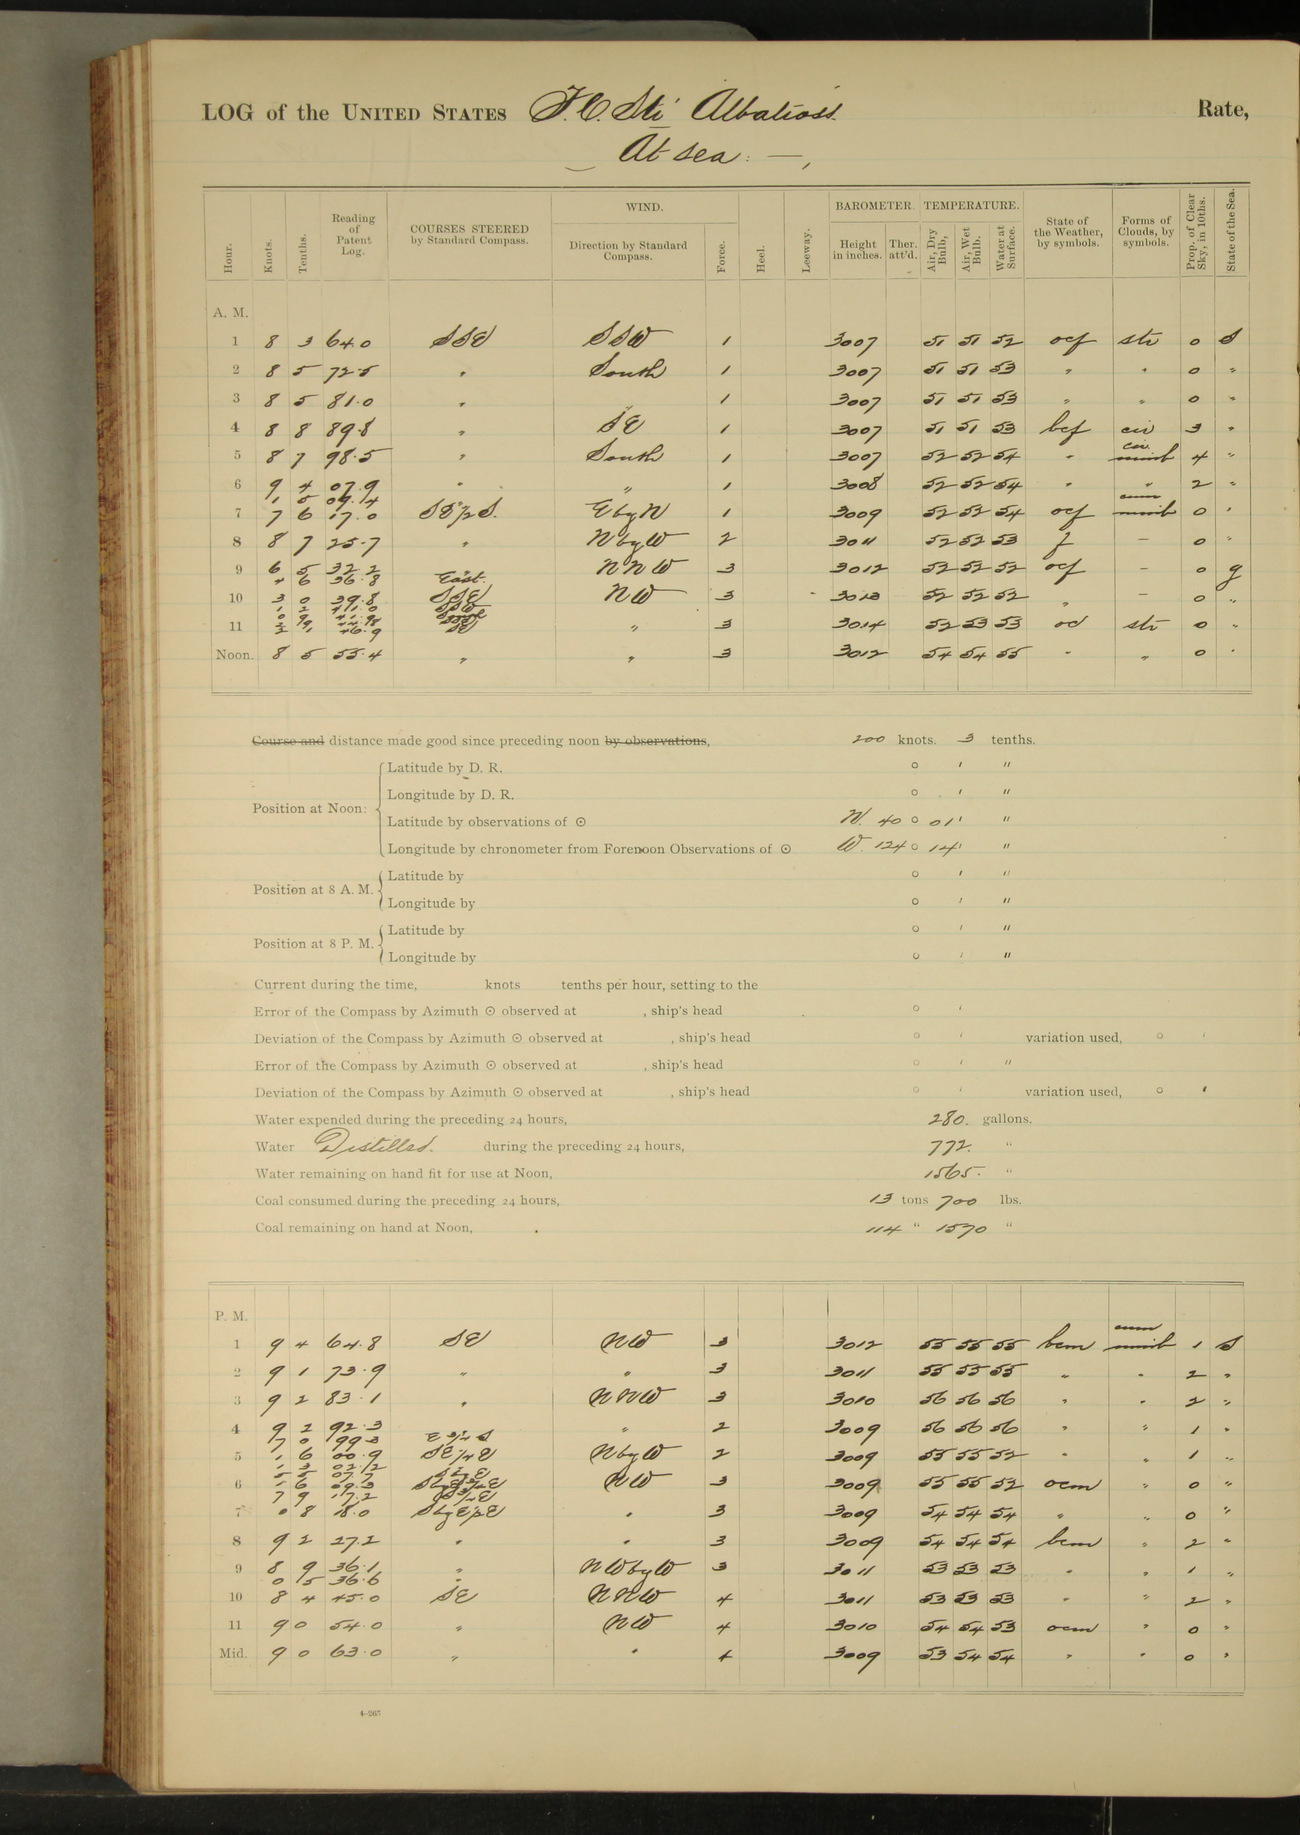 LOG of the UNITED STATES F. C. Str Albatross. Rate,
At sea: —,
Hour. Knots. Tenths. Reading of Patent Log. COURSES STEERED by Standard Compass. WIND. Direction by Standard Compass. Force. Heel. Leeway. BAROMETER. Height in inches. Ther. att'd. TEMPERATURE. Air, Dry Bulb, Air, Wet Bulb. Water at Surface. State of the Weather, by symbols. Forms of Clouds, by symbols. Prop. of Clear Sky, in 10ths. State of the Sea.
A. M.
1 8 3 64.0 SSE SSW 1 3007 51 51 52 ocf str 0 S
2 8 5 72.5 " South 1 3007 51 51 53 " " 0 "
3 8 5 81.0 " " 1 3007 51 51 53 " " 0 "
4 8 8 89.8 " SE 1 3007 51 51 53 bcf cir 3 "
5 8 7 98.5 " South 1 3007 52 52 54 " cir. nimb 4 "
6 9 4 07.9 " " 1 3008 52 52 54 " " 2 "
1 5 09.4
7 7 6 17.0 SE½S. E by N 1 3009 52 52 54 ocf cum nimb 0 "
8 8 7 25.7 " N by W 2 3011 52 52 53 f — 0 "
9 6 5 32.2 " NNW 3 3012 52 52 52 ocf — 0 g
4 6 36.8 East.
10 3 0 39.8 SSE NW 3 3013 52 52 52 " — 0 "
1 2 41.0 SSW
11 46.9 SE " 3 3014 52 53 53 oc str 0 "
Noon. 8 5 55.4 " " 3 3012 54 54 55 " " 0 "
Course and distance made good since preceding noon by observations, 200 knots. 3 tenths.
Position at Noon:
Latitude by D. R. ° ′ ″
Longitude by D. R. ° ′ ″
Latitude by observations of ☉ N. 40 ° 01 ′ ″
Longitude by chronometer from Forenoon Observations of ☉ W. 124 ° 14 ′ ″
Position at 8 A. M.
Latitude by ° ′ ″
Longitude by ° ′ ″
Position at 8 P. M.
Latitude by ° ′ ″
Longitude by ° ′ ″
Current during the time, knots tenths per hour, setting to the
Error of the Compass by Azimuth ☉ observed at , ship's head ° ′
Deviation of the Compass by Azimuth ☉ observed at , ship's head ° ′ variation used, ° ′
Error of the Compass by Azimuth ☉ observed at , ship's head ° ′ ″
Deviation of the Compass by Azimuth ☉ observed at , ship's head ° ′ variation used, ° ′
Water expended during the preceding 24 hours, 280. gallons.
Water Distilled. during the preceding 24 hours, 772. "
Water remaining on hand fit for use at Noon, 1565. "
Coal consumed during the preceding 24 hours, 13 tons 700 lbs.
Coal remaining on hand at Noon, 114 " 1570 "
P. M.
1 9 4 64.8 SE NW 3 3012 55 55 55 bcm cum nimb 1 S
2 9 1 73.9 " " 3 3011 55 55 55 " " 2 "
3 9 2 83.1 " NNW 3 3010 56 56 56 " " 2 "
4 9 2 92.3 " 2 3009 56 56 56 " " 1 "
7 0 99.3 E¾S
5 1 6 00.9 SE¼E N by W 2 3009 55 55 52 " " 1 "
1 3 02.2
5 5 07.7
6 1 6 09.3 NW 3 3009 55 55 52 ocm " 0 "
7 9 17.2
7 0 8 18.0 S by E½E " 3 3009 54 54 54 " " 0 "
8 9 2 27.2 " " 3 3009 54 54 54 bcm " 2 "
9 8 9 36.1 " NW by W 3 3011 53 53 53 " " 1 "
0 5 36.6 "
10 8 4 45.0 SE NNW 4 3011 53 53 53 " " 2 "
11 9 0 54.0 " NW 4 3010 54 54 53 ocm " 0 "
Mid. 9 0 63.0 " " 4 3009 53 54 54 " " 0 "
4-265